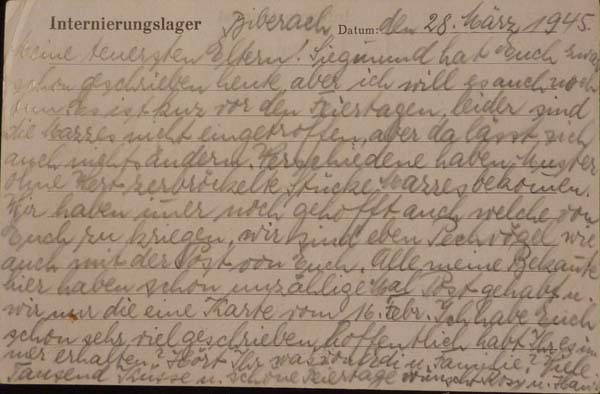 Internierungslager Biberach, Datum: den 28. März 1945.
Meine teuersten Eltern! Siegmund hat Euch zwar
schon geschrieben heute, aber ich will es auch noch
tun. Es ist kurz vor den Feiertagen, leider sind
die Mazzes nicht eingetroffen, aber da lässt sich
auch nichts ändern. Verschiedene haben Muster
ohne Wert zerbröckelte Stücke Mazzes bekomen.
Wir haben imer noch gehofft auch welche von
Euch zu kriegen, wir sind eben Pechvögel wie
auch mit der Post von Euch. Alle meine Bekante
hier haben schon unzählige Mal Post gehabt u.
wir nur die eine Karte vom 16. Febr. Ich habe Euch
schon sehr viel geschrieben, hoffentlich habt Ihr es im
mer erhalten? Hört Ihr was von u. Familie? Viele
Tausend Küsse u. schöne Feiertage wünscht Rosy u.